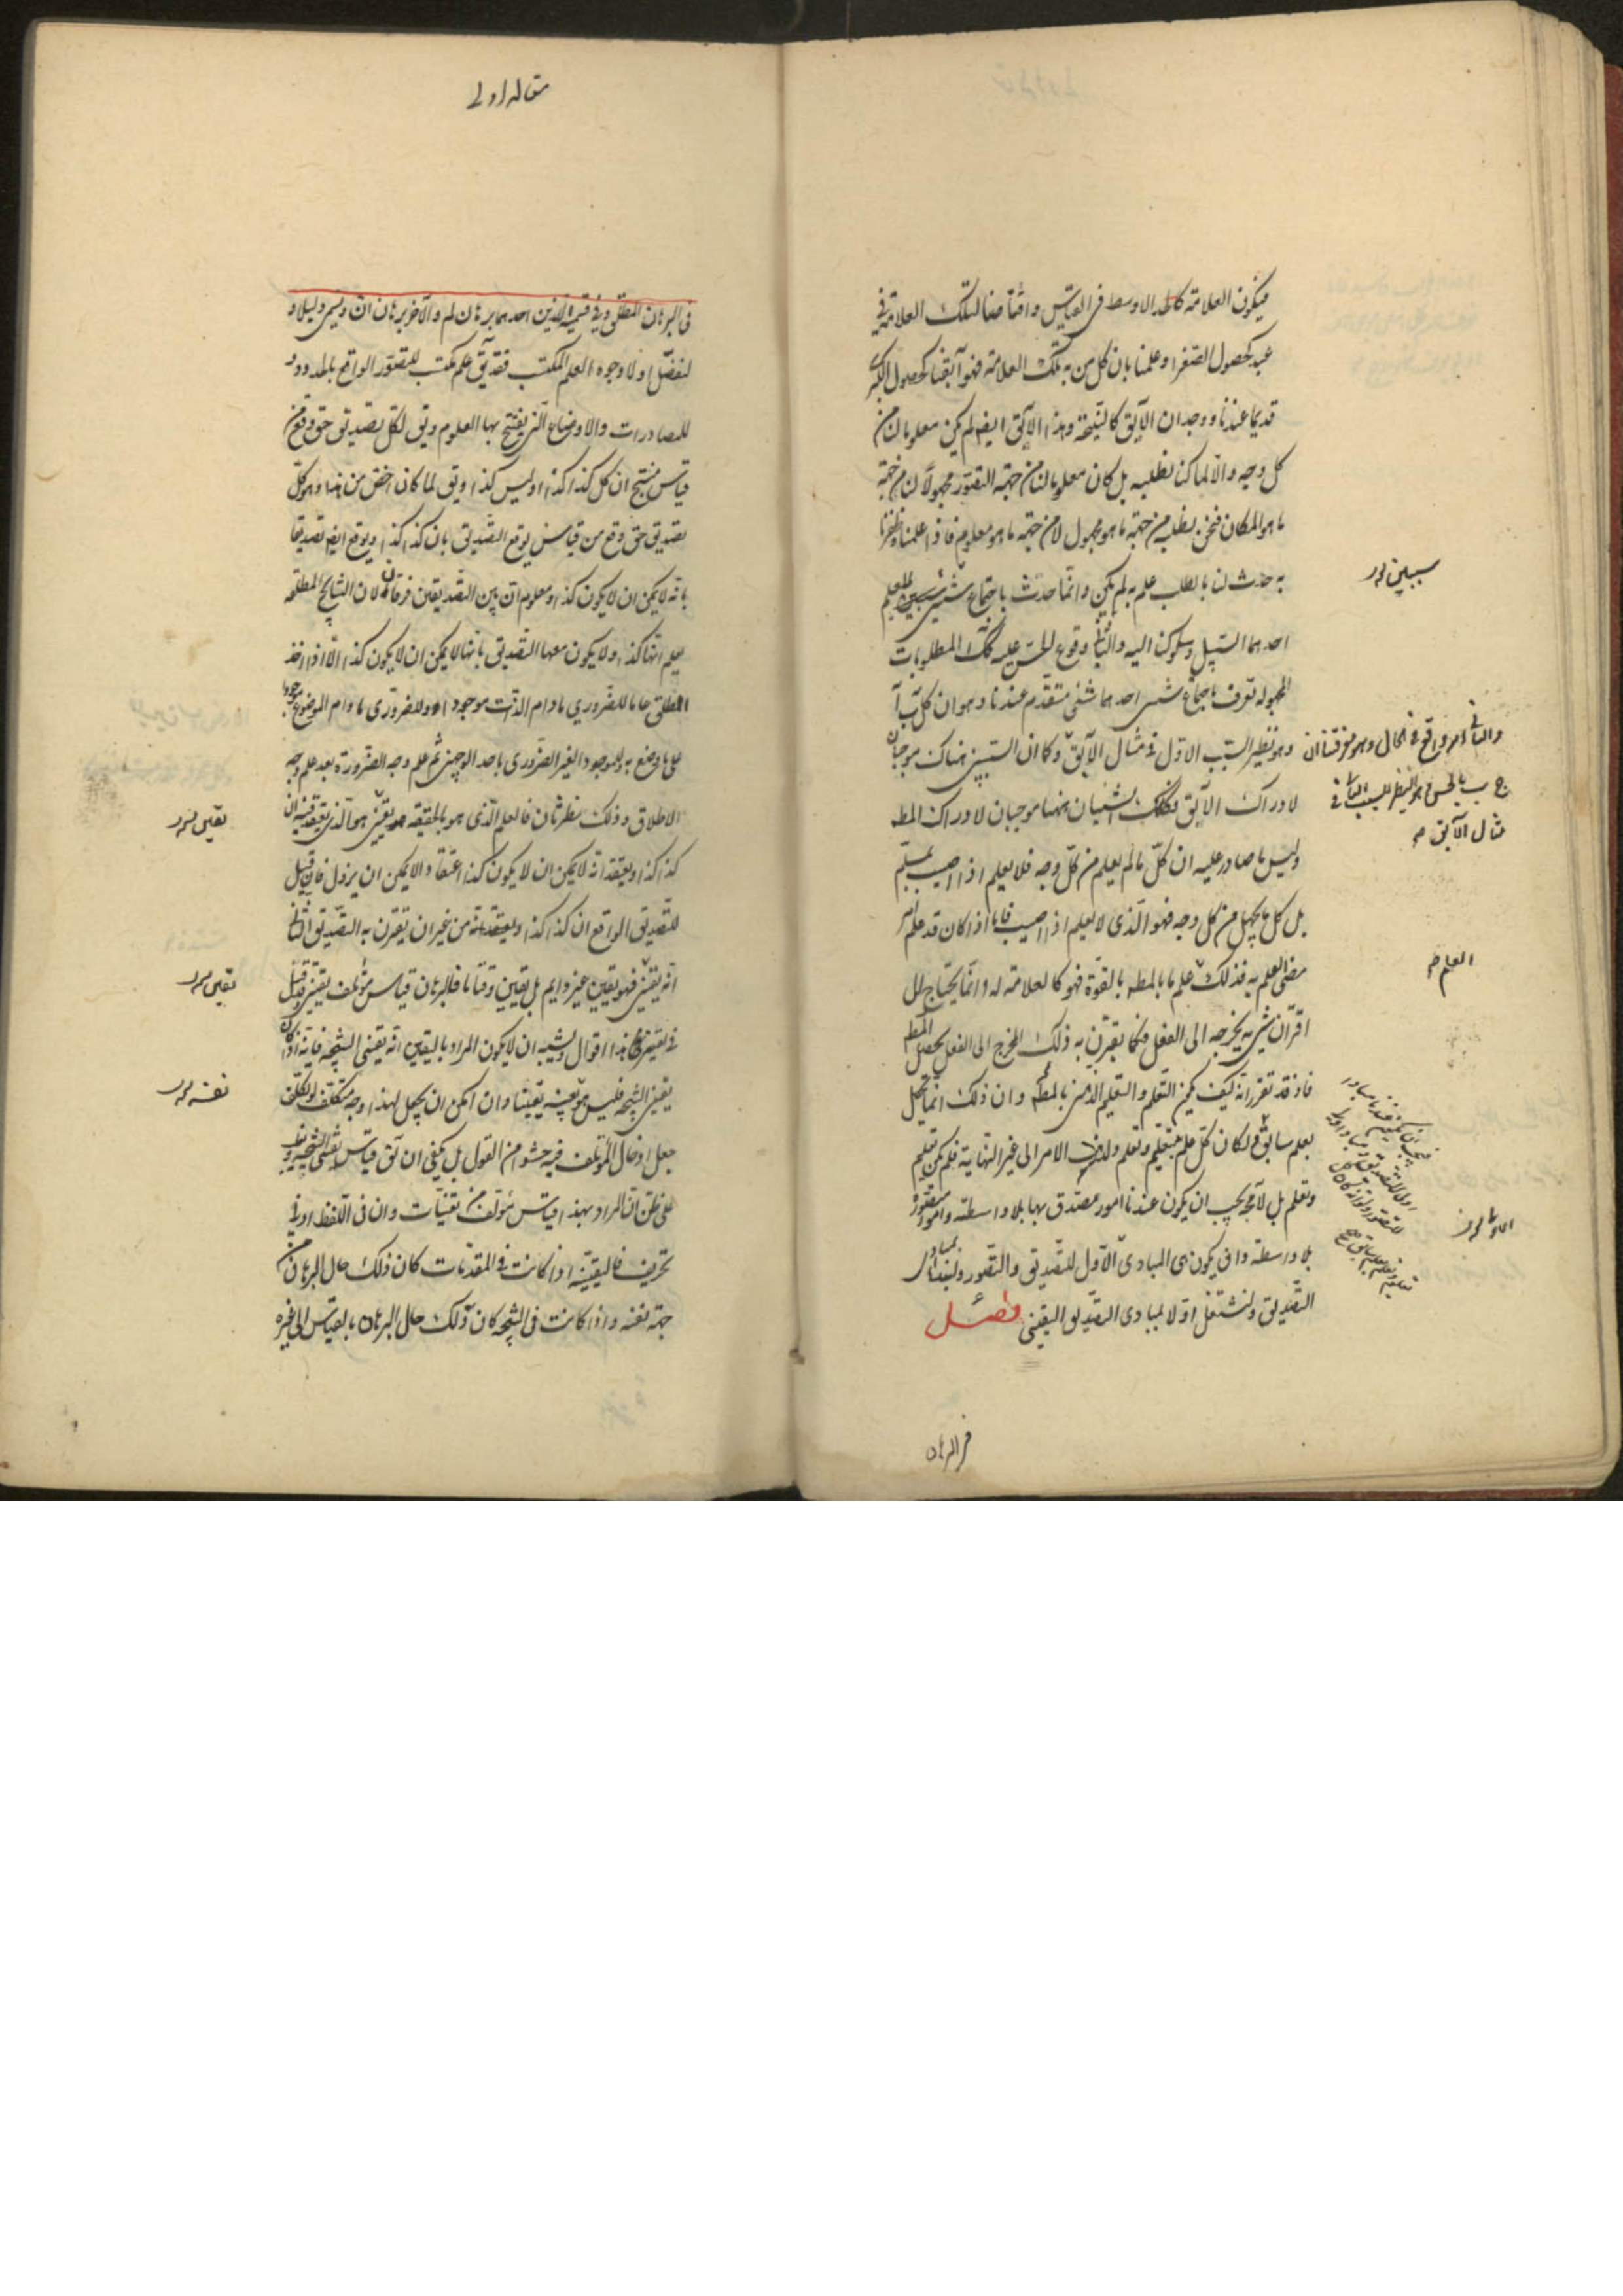 فيكون العلامة كالحد الاوسط فى القياس واقتناصنا لتلك العلامة فى
عبد كحصول الصغرا وعلمنا بان كل من به تلك العلامة فهو آبقنا كحصول الكبرى
قديما عندنا ووجدان الآبق كالنتيجة وهذا الآبق ايضا لم يكن معلوما لنا من
كل وجه والا لما كنا نطلبه بل كان معلوما لنا من جهة التصور مجهولا لنا من جهة
ما هو المكان فنحن نطلبه من جهة ما هو مجهول لا من جهة ما هو معلوم فاذا علمناه وظفرنا
به حدث لنا بالطلب علم به لم يكن وانما حدث باجتماع شيئين سببين للعلم
احدهما السبيل وسلوكنا اليه والثانى وقوع الحس عليه كك المطلوبات
المجهولة تعرف باجتماع شيئين احدهما شئ متقدم عندنا وهو ان كل ب آ
وهو نظير السبب الاول فى مثال الآبق وكما ان السببين هناك موجبان
لادراك الآبق كك الشيئان ههنا موجبان لادراك المط
وليس ما صادر عليه ان كل ما لم يعلم من كل وجه فلا يعلم اذا اصيب بمسلم
بل كل ما يجهل من كل وجه فهو الذى لا يعلم اذا اصيب فاما اذا كان قد علم امر
مضى العلم به فذلك علم ما بالمط بالقوة فهو كالعلامة له وانما يحتاج الى
اقتران شئ به يخرجه الى الفعل فكما يقترن به ذلك المخرج الى الفعل يحصل المط
فاذ قد تقرر انه كيف يكون التعلم والتعليم الذهنى بالمط وان ذلك انما يحصل
بعلم سابق فلو كان كل علم بتعليم وتعلم ولذهب الامر الى غير النهاية فلم يكن تعليم
وتعلم بل لا محة يجب ان يكون عندنا امور مصدق بها بلا واسطة وامور متصورة
بلا واسطة وان يكون هى المبادى الاول للتصديق والتصور ولنبدأ بمبادى
التصديق ولنشتغل اولا بمبادى التصديق اليقينى فصل
فى البرهان
سببين
والثانى امر واقع فى الحال وهو معرفتنا ان
ج ب بالحس وهو النظير للسبب الثانى فى
مثال الآبق
العلم
مقاله اولے
فى البرهان المطلق وفى قسميه الذين احدهما برهان لم والآخر برهان ان ويسمى دليلا و
لنفصل اولا وجوه العلم المكتسب فقد يق علم مكتسب للتصور الواقع بالحدود و
للمصادرات والاوضاع التى يفتتح بها العلوم ويق لكل تصديق حق وقع من
قياس منتج ان كل كذا كذا او ليس كذا ويق لما كان اخص من هذا وهو كل
تصديق حق وقع من قياس يوقع التصديق بان كذا كذا ويوقع ايضا تصديقا
بانه لا يمكن ان لا يكون كذا ومعلوم ان بين التصديقين فرقانا لان النتايج المطلقة
يعلم انها كذا ولا يكون معها التصديق بانها لا يمكن ان لا يكون كذا الا اذا اخذ
المطلق عاما للضرورى مادام الذات موجودا وللضرورى مادام الموضوع موجودا
على ما وضع به وللموجود الغير الضرورى باحد الوجهين ثم علم وجه الضرورة بعد علم وجه
الاطلاق وذلك نظر ثان فالعلم الذى هو بالحقيقة يقين هو الذى يعتقد فيه ان
كذا كذا ويعتقد انه لا يمكن ان لا يكون كذا اعتقادا لا يمكن ان يزول فان قيل
للتصديق الواقع ان كذا كذا من غير ان يقترن به التصديق الثانى
انه يقين فهو يقين غير دايم بل يقين وقتا ما فالبرهان قياس مؤتلف يقينى وقد قيل
فى تفسير هذا اقوال ويشبه ان لا يكون المراد باليقين انه يقينى النتيجة فانه اذا كان
يقينى النتيجة فليس هو نفسه يقينا وان امكن ان يجعل لهذا وجه متكلف لو تكلف
جعل ادخال المؤتلف فيه حشوا من القول بل يكفى ان يق قياس يقينى النتيجة
على ظن ان المراد بهذا قياس مؤلف من يقينيات وان فى اللفظ ادنى
تحريف فاليقينية اذا كانت فى المقدمات كان ذلك حال البرهان من
جهة نفسه واذا كانت فى النتيجة كان ذلك حال البرهان بالقياس الى غيره
يقين
يقين
نفسه